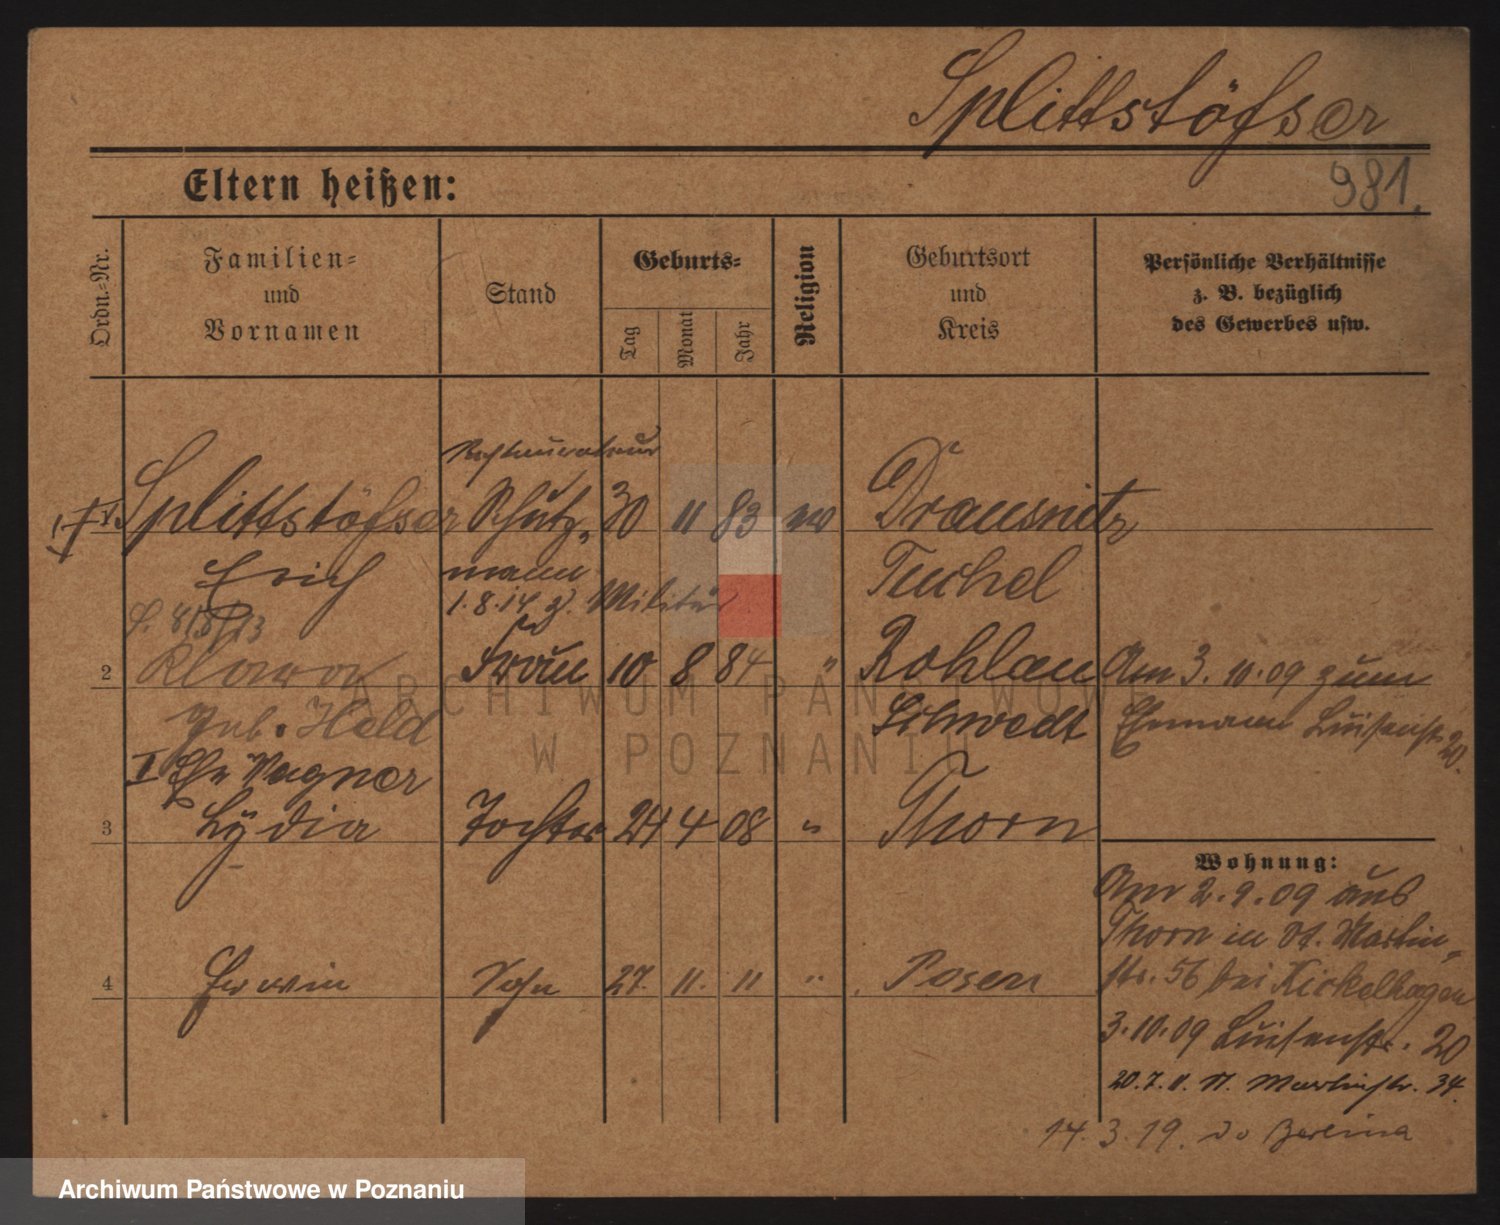 Splittstöfser
981.
Eltern heißen:
Ordn.-Nr.
Familien-
und
Vornamen
Stand
Geburts-
Tag
Monat
Jahr
Religion
Geburtsort
und
Kreis
Persönliche Verhältnisse
z. B. bezüglich
des Gewerbes usw.
Restaurateur
1 Splittstöfser Schutz- 30 11 83 Drausnitz
Erich mann Tuchel
1.8.14 z. Militär
2 Klara Frau 10 8 84 " Rohlau Am 3. 10. 09 zum
geb. Held Schwedt Ehemann Luisenstr. 20.
I Ehe Wagner
3 Lydia Tochter 24 4 08 " Thorn
Wohnung:
Am 2. 9. 09 aus
Thorn in St. Martin-
4 Erwin Sohn 27. 11. 11 " Posen
str. 56 bei Kickelhagen
3. 10. 09 Luisenstr. 20
20. 7. 11. St. Martinstr. 34.
14. 3. 19. do Berlina
ARCHIWUM PAŃSTWOWE
W POZNANIU
Archiwum Państwowe w Poznaniu